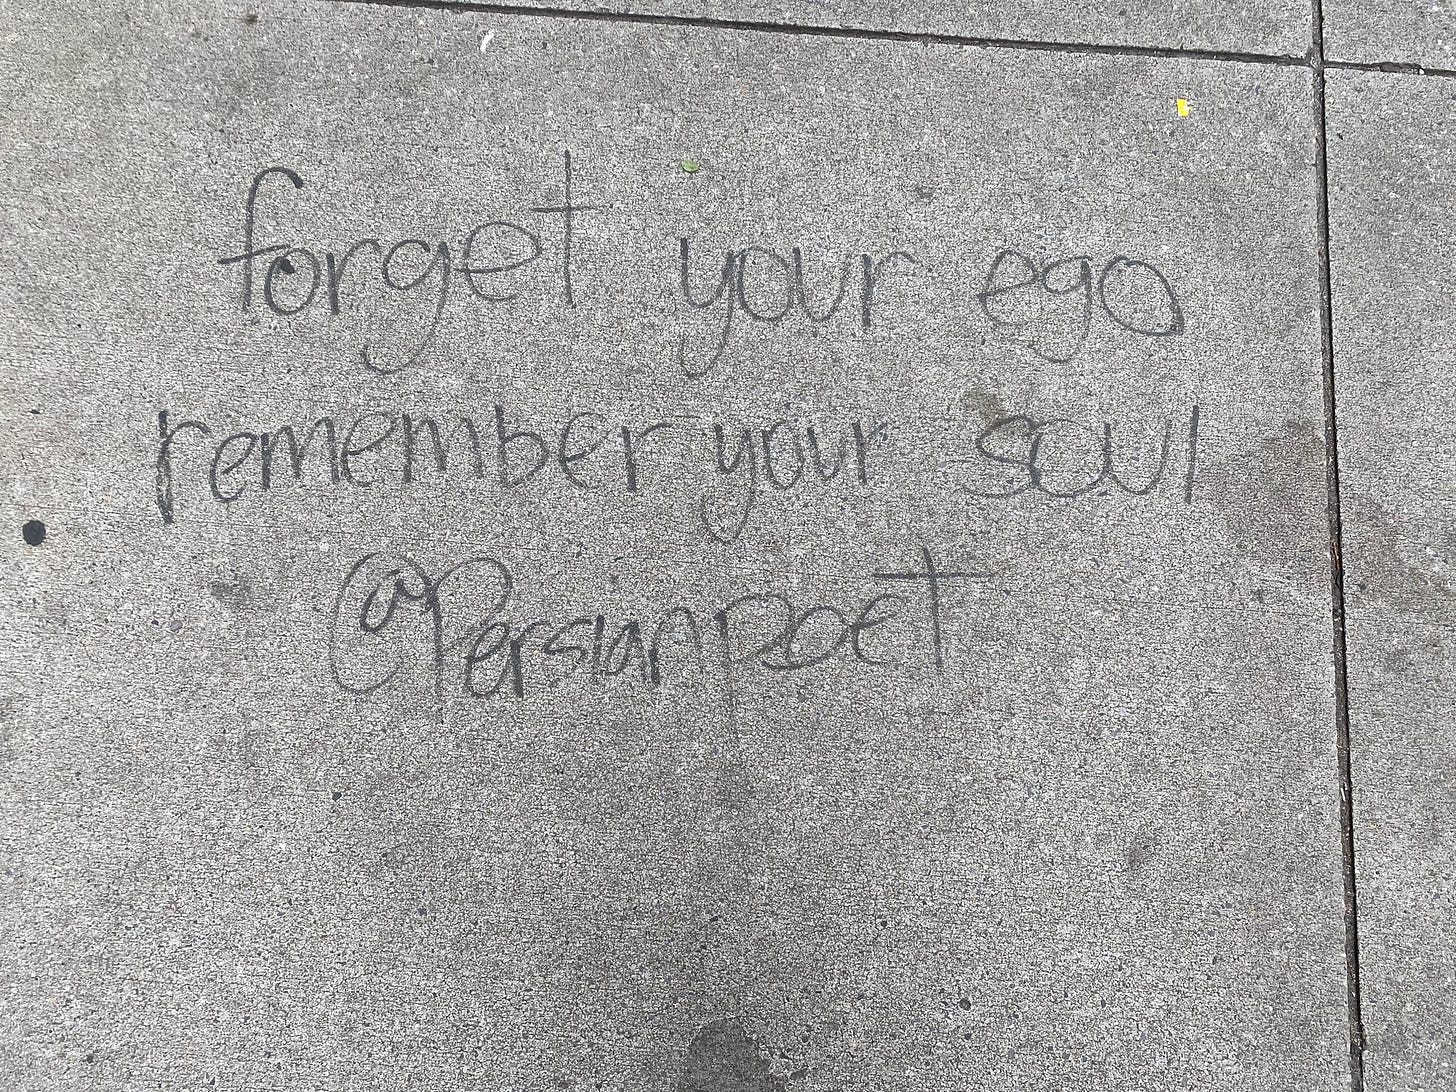 forget your ego
remember your soul
@Persianpoet